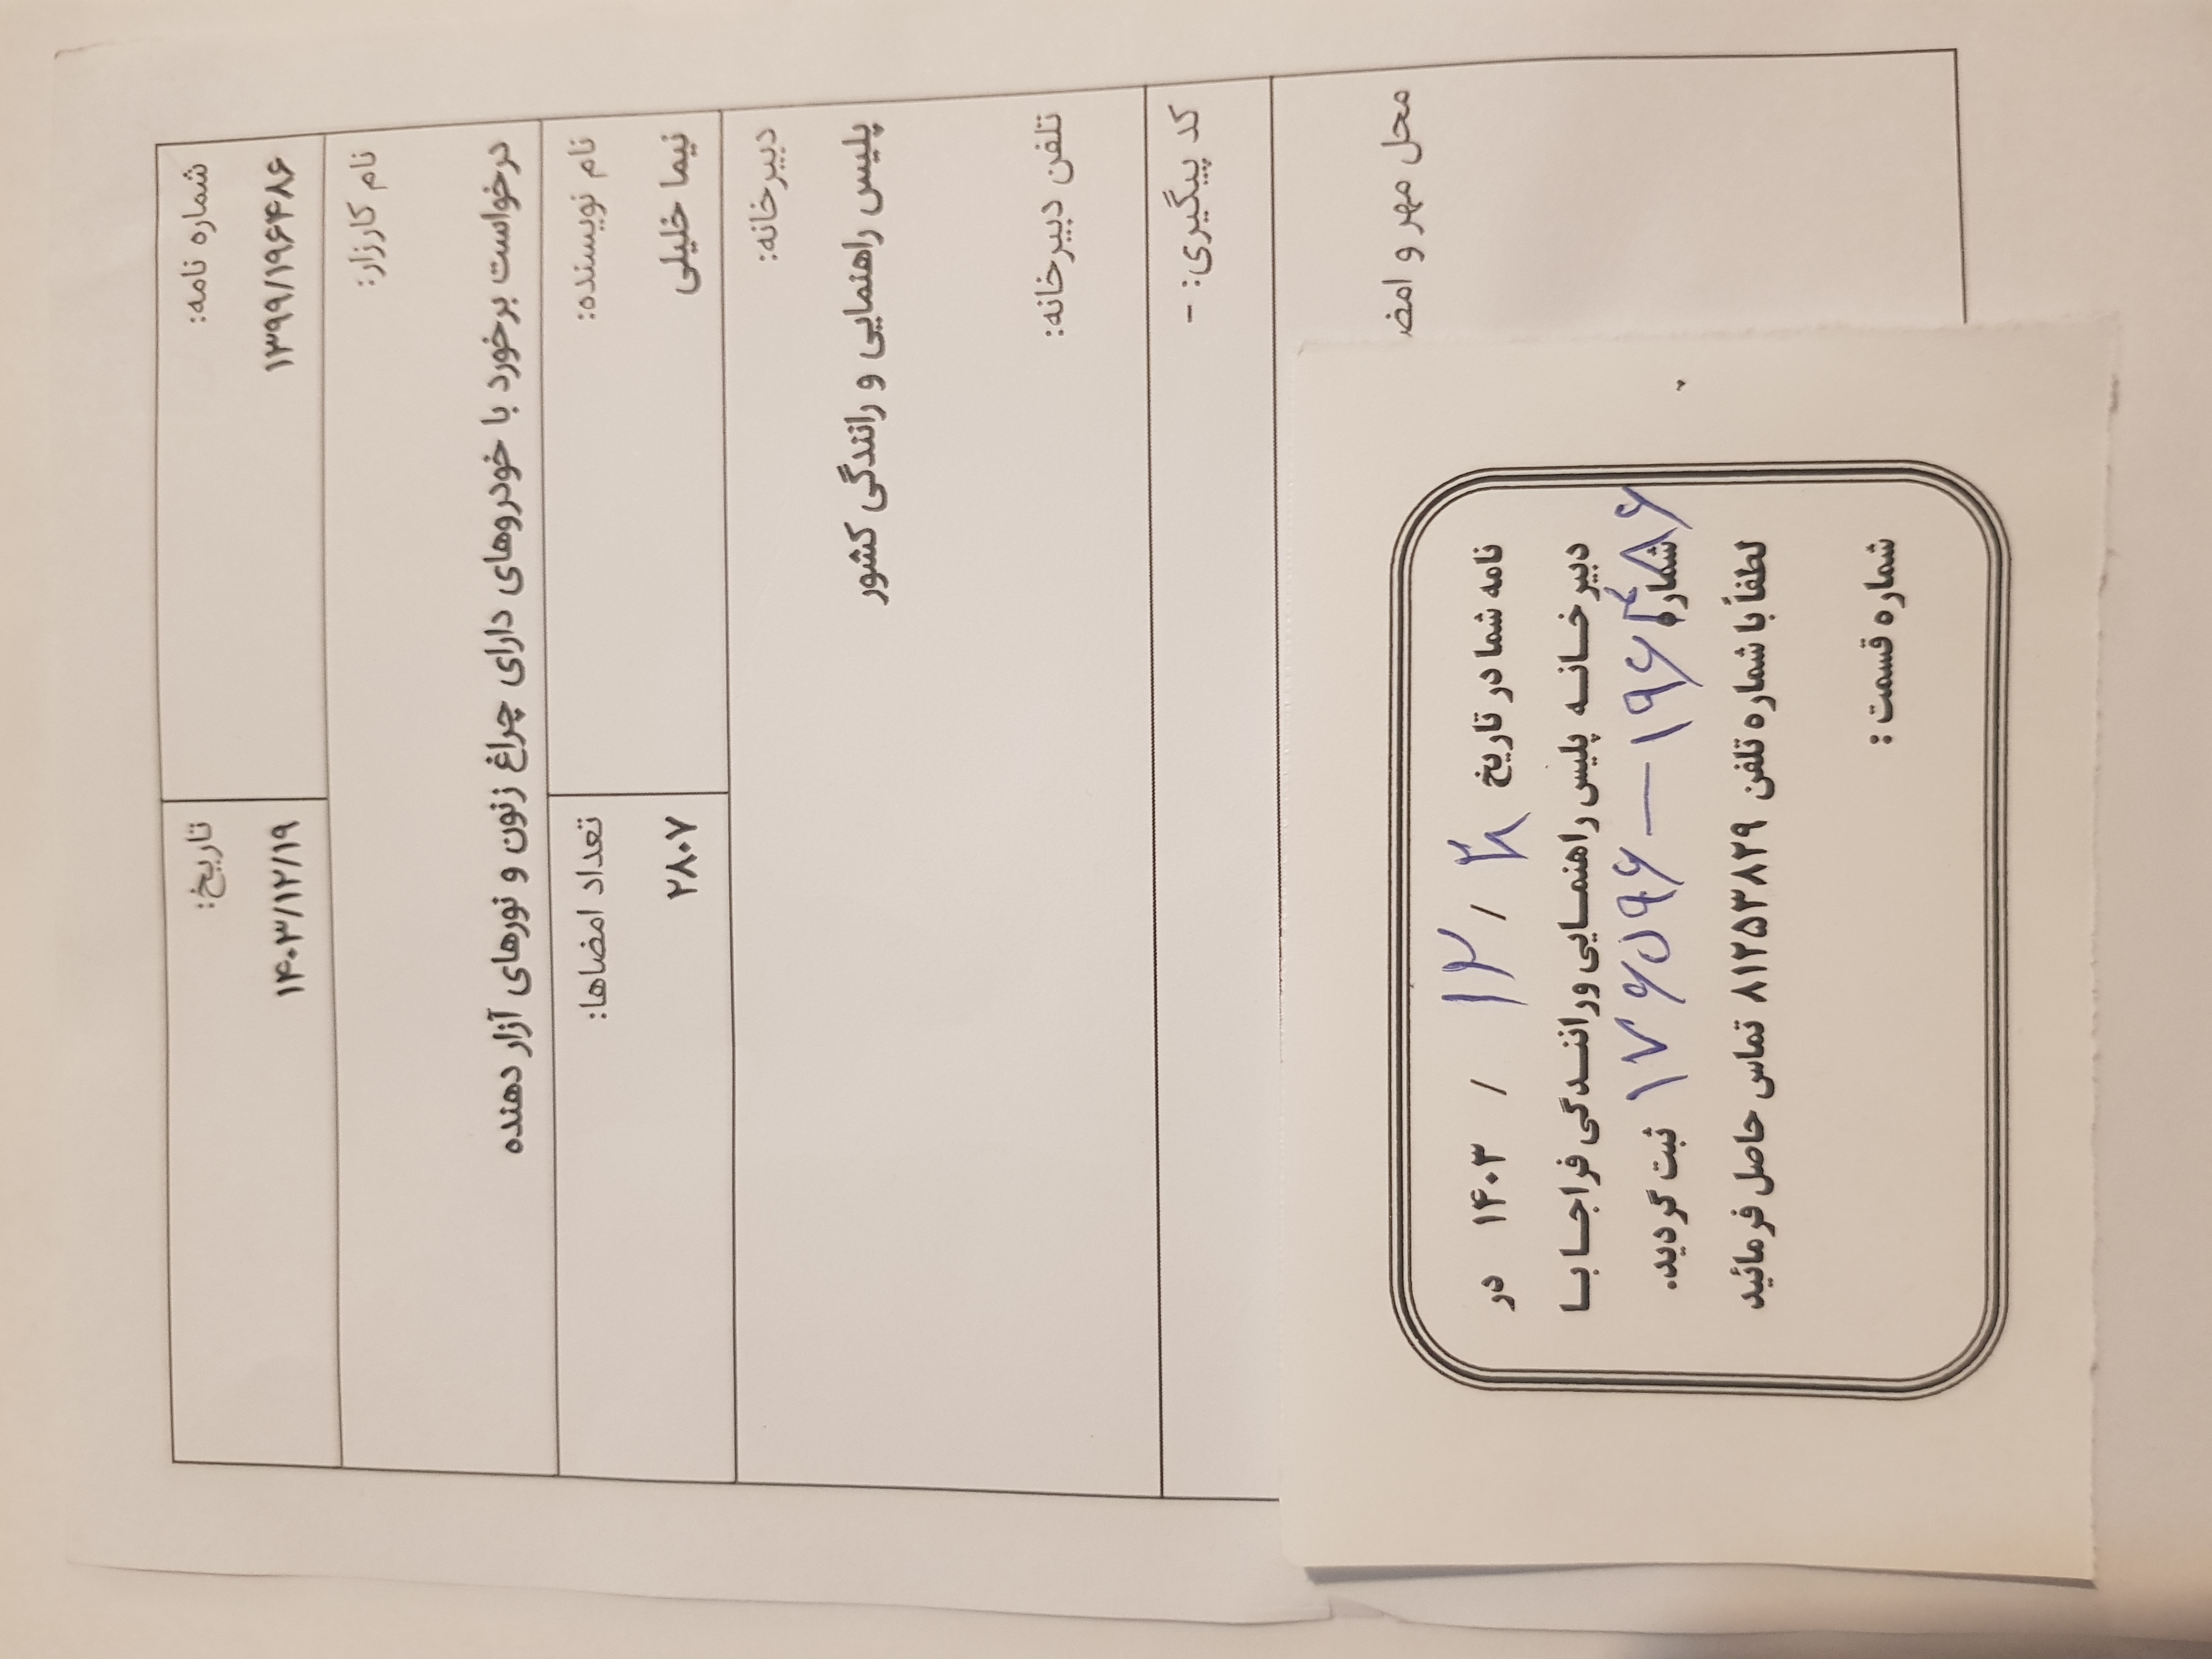 شماره نامه:
۱۳۹۹/۱۹۶۴۸۶
تاریخ:
۱۴۰۳/۱۲/۱۹
نام کارزار:
درخواست برخورد با خودروهای دارای چراغ زنون و نورهای آزار دهنده
نام نویسنده:
نیما خلیلی
تعداد امضاها:
۲۸۰۷
دبیرخانه:
پلیس راهنمایی و رانندگی کشور
تلفن دبیرخانه:
کد پیگیری: -
محل مهر و امض
نامه شما در تاریخ / ۱۲ / ۱۴۰۳ در
دبیرخانه پلیس راهنمایی ورانندگی فراجا با
شماره ۱۹۶۴۸۶ — ۱۷۶۵۹۶ ثبت گردید.
لطفاً با شماره تلفن ۸۱۲۵۳۸۲۹ تماس حاصل فرمائید
شماره قسمت :